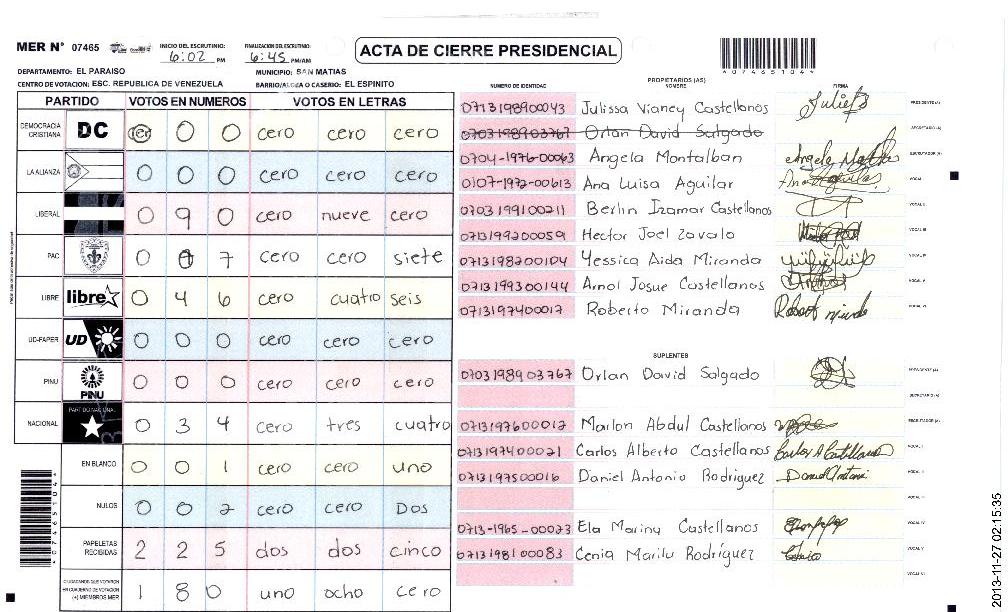 MER N° 07465
INICIO DEL ESCRUTINIO: 6:02 PM
FINALIZACIÓN DEL ESCRUTINIO: 6:45 PM/AM
ACTA DE CIERRE PRESIDENCIAL
*07465104*
DEPARTAMENTO: EL PARAISO
MUNICIPIO: SAN MATIAS
CENTRO DE VOTACION: ESC. REPUBLICA DE VENEZUELA
BARRIO/ALDEA O CASERIO: EL ESPINITO
PARTIDO VOTOS EN NUMEROS VOTOS EN LETRAS
DEMOCRACIA CRISTIANA DC 0 0 cero cero cero
LA ALIANZA 0 0 0 cero cero cero
LIBERAL 0 9 0 cero nueve cero
PAC 0 0 7 cero cero siete
LIBRE libre 0 4 6 cero cuatro seis
UD-FAPER UD 0 0 0 cero cero cero
PINU PINU 0 0 0 cero cero cero
NACIONAL PARTIDO NACIONAL 0 3 4 cero tres cuatro
EN BLANCO 0 0 1 cero cero uno
NULOS 0 0 2 cero cero Dos
PAPELETAS RECIBIDAS 2 2 5 dos dos cinco
CIUDADANOS QUE VOTARON EN CUADERNO DE VOTACION (+) MIEMBROS MER 1 8 0 uno ocho cero
PROPIETARIOS (AS)
NUMERO DE IDENTIDAD NOMBRE FIRMA
0713198900043 Julissa Vianey Castellanos PRESIDENTE (A)
0703198903767 Orlan David Salgado SECRETARIO (A)
0704-1976-00063 Angela Montalban ESCRUTADOR (A)
0107-1972-00613 Ana Luisa Aguilar VOCAL I
0703199100211 Berlin Izamar Castellanos VOCAL II
0713199200059 Hector Joel Zavala VOCAL III
0713198200104 Yessica Aida Miranda VOCAL IV
0713199300144 Arnol Josue Castellanos VOCAL V
0713197400017 Roberto Miranda VOCAL VI
SUPLENTES
0703198903767 Orlan David Salgado PRESIDENTE (A)
SECRETARIO (A)
0713197600012 Marlon Abdul Castellanos ESCRUTADOR (A)
0713197400021 Carlos Alberto Castellanos VOCAL I
0713197500016 Daniel Antonio Rodriguez VOCAL II
VOCAL III
0713-1965-00023 Ela Marina Castellanos VOCAL IV
0713198100083 Cenia Marilu Rodríguez VOCAL V
VOCAL VI
*07465104*
2013-11-27 02:15:35